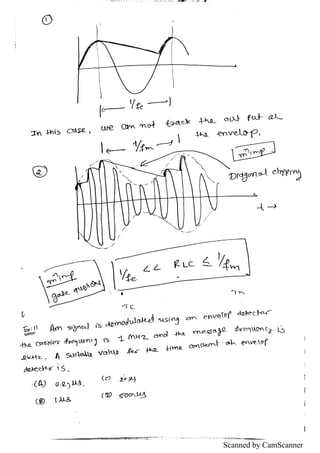 ①
1/fc
In this case, we can not track the out put at
the envelop.
1/fm
②
m'imp
Diagonal clipping
t →
m'imp
gate questions
1/fc << RLC ≤ 1/fm
Tc
Tm
Am signal is demodulated using an envelop detector
the carrier frequency is 1 MHz and the message frequency is
2kHz. A suitable value for the time constant at envelop
detector is.
(A) 0.2μs. (c) 20μs
(B) 1μs (D) 500μs
Scanned by CamScanner